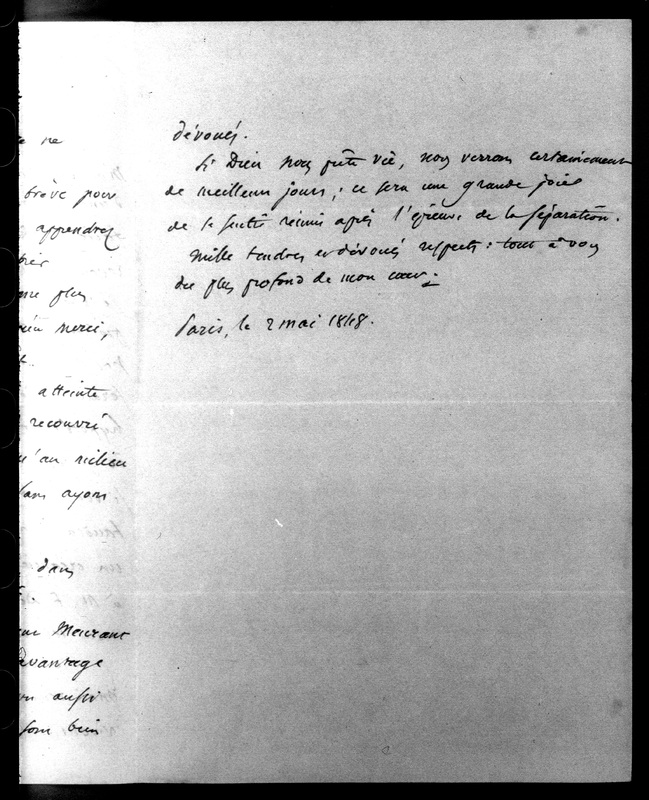 ne
trève pour
apprendrez
me plus
merci,
atteinte
recouvré
qu'au milieu
ayons
dans
Maurant
davantage
aussi
sont bien
dévoués.
Si Dieu nous prête vie, nous verrons certainement
de meilleurs jours ; ce sera une grande joie
de se sentir réunis après l'épreuve de la séparation.
Mille tendres et dévoués respects : tout à vous
du plus profond de mon cœur.
Paris, le 2 mai 1848.